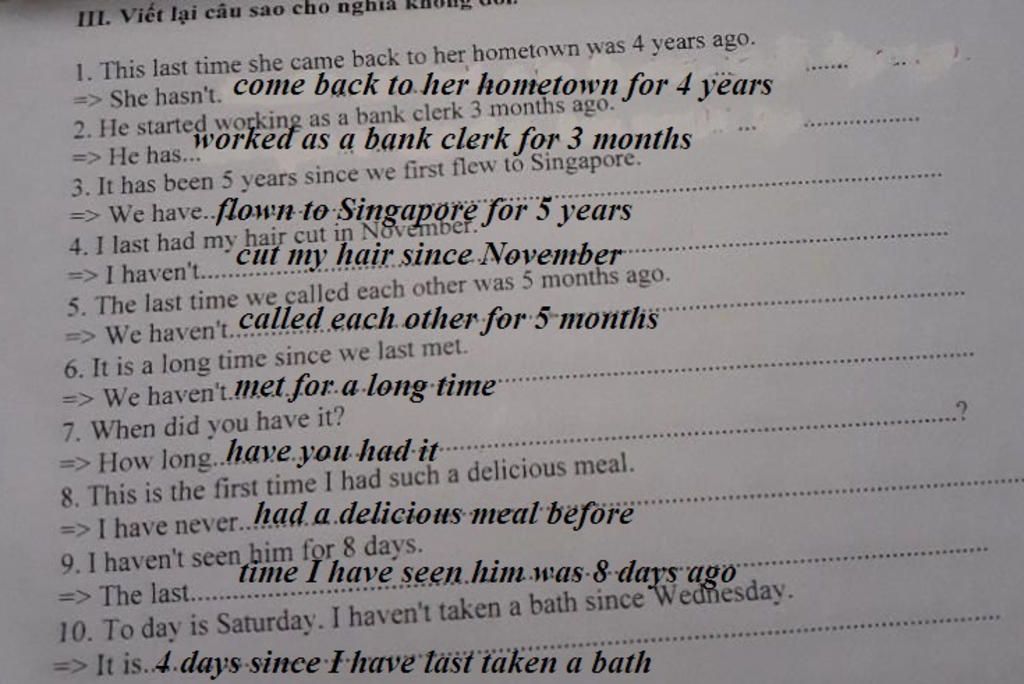 III. Viết lại câu sao cho nghĩa không đổi.
1. This last time she came back to her hometown was 4 years ago.
=> She hasn't. come back to her hometown for 4 years
2. He started working as a bank clerk 3 months ago.
=> He has... worked as a bank clerk for 3 months
3. It has been 5 years since we first flew to Singapore.
=> We have.. flown to Singapore for 5 years
4. I last had my hair cut in November.
=> I haven't..... cut my hair since November
5. The last time we called each other was 5 months ago.
=> We haven't. called each other for 5 months
6. It is a long time since we last met.
=> We haven't. met for a long time
7. When did you have it?
=> How long.. have you had it ?
8. This is the first time I had such a delicious meal.
=> I have never.. had a delicious meal before
9. I haven't seen him for 8 days.
=> The last..... time I have seen him was 8 days ago
10. To day is Saturday. I haven't taken a bath since Wednesday.
=> It is.. 4 days since I have last taken a bath